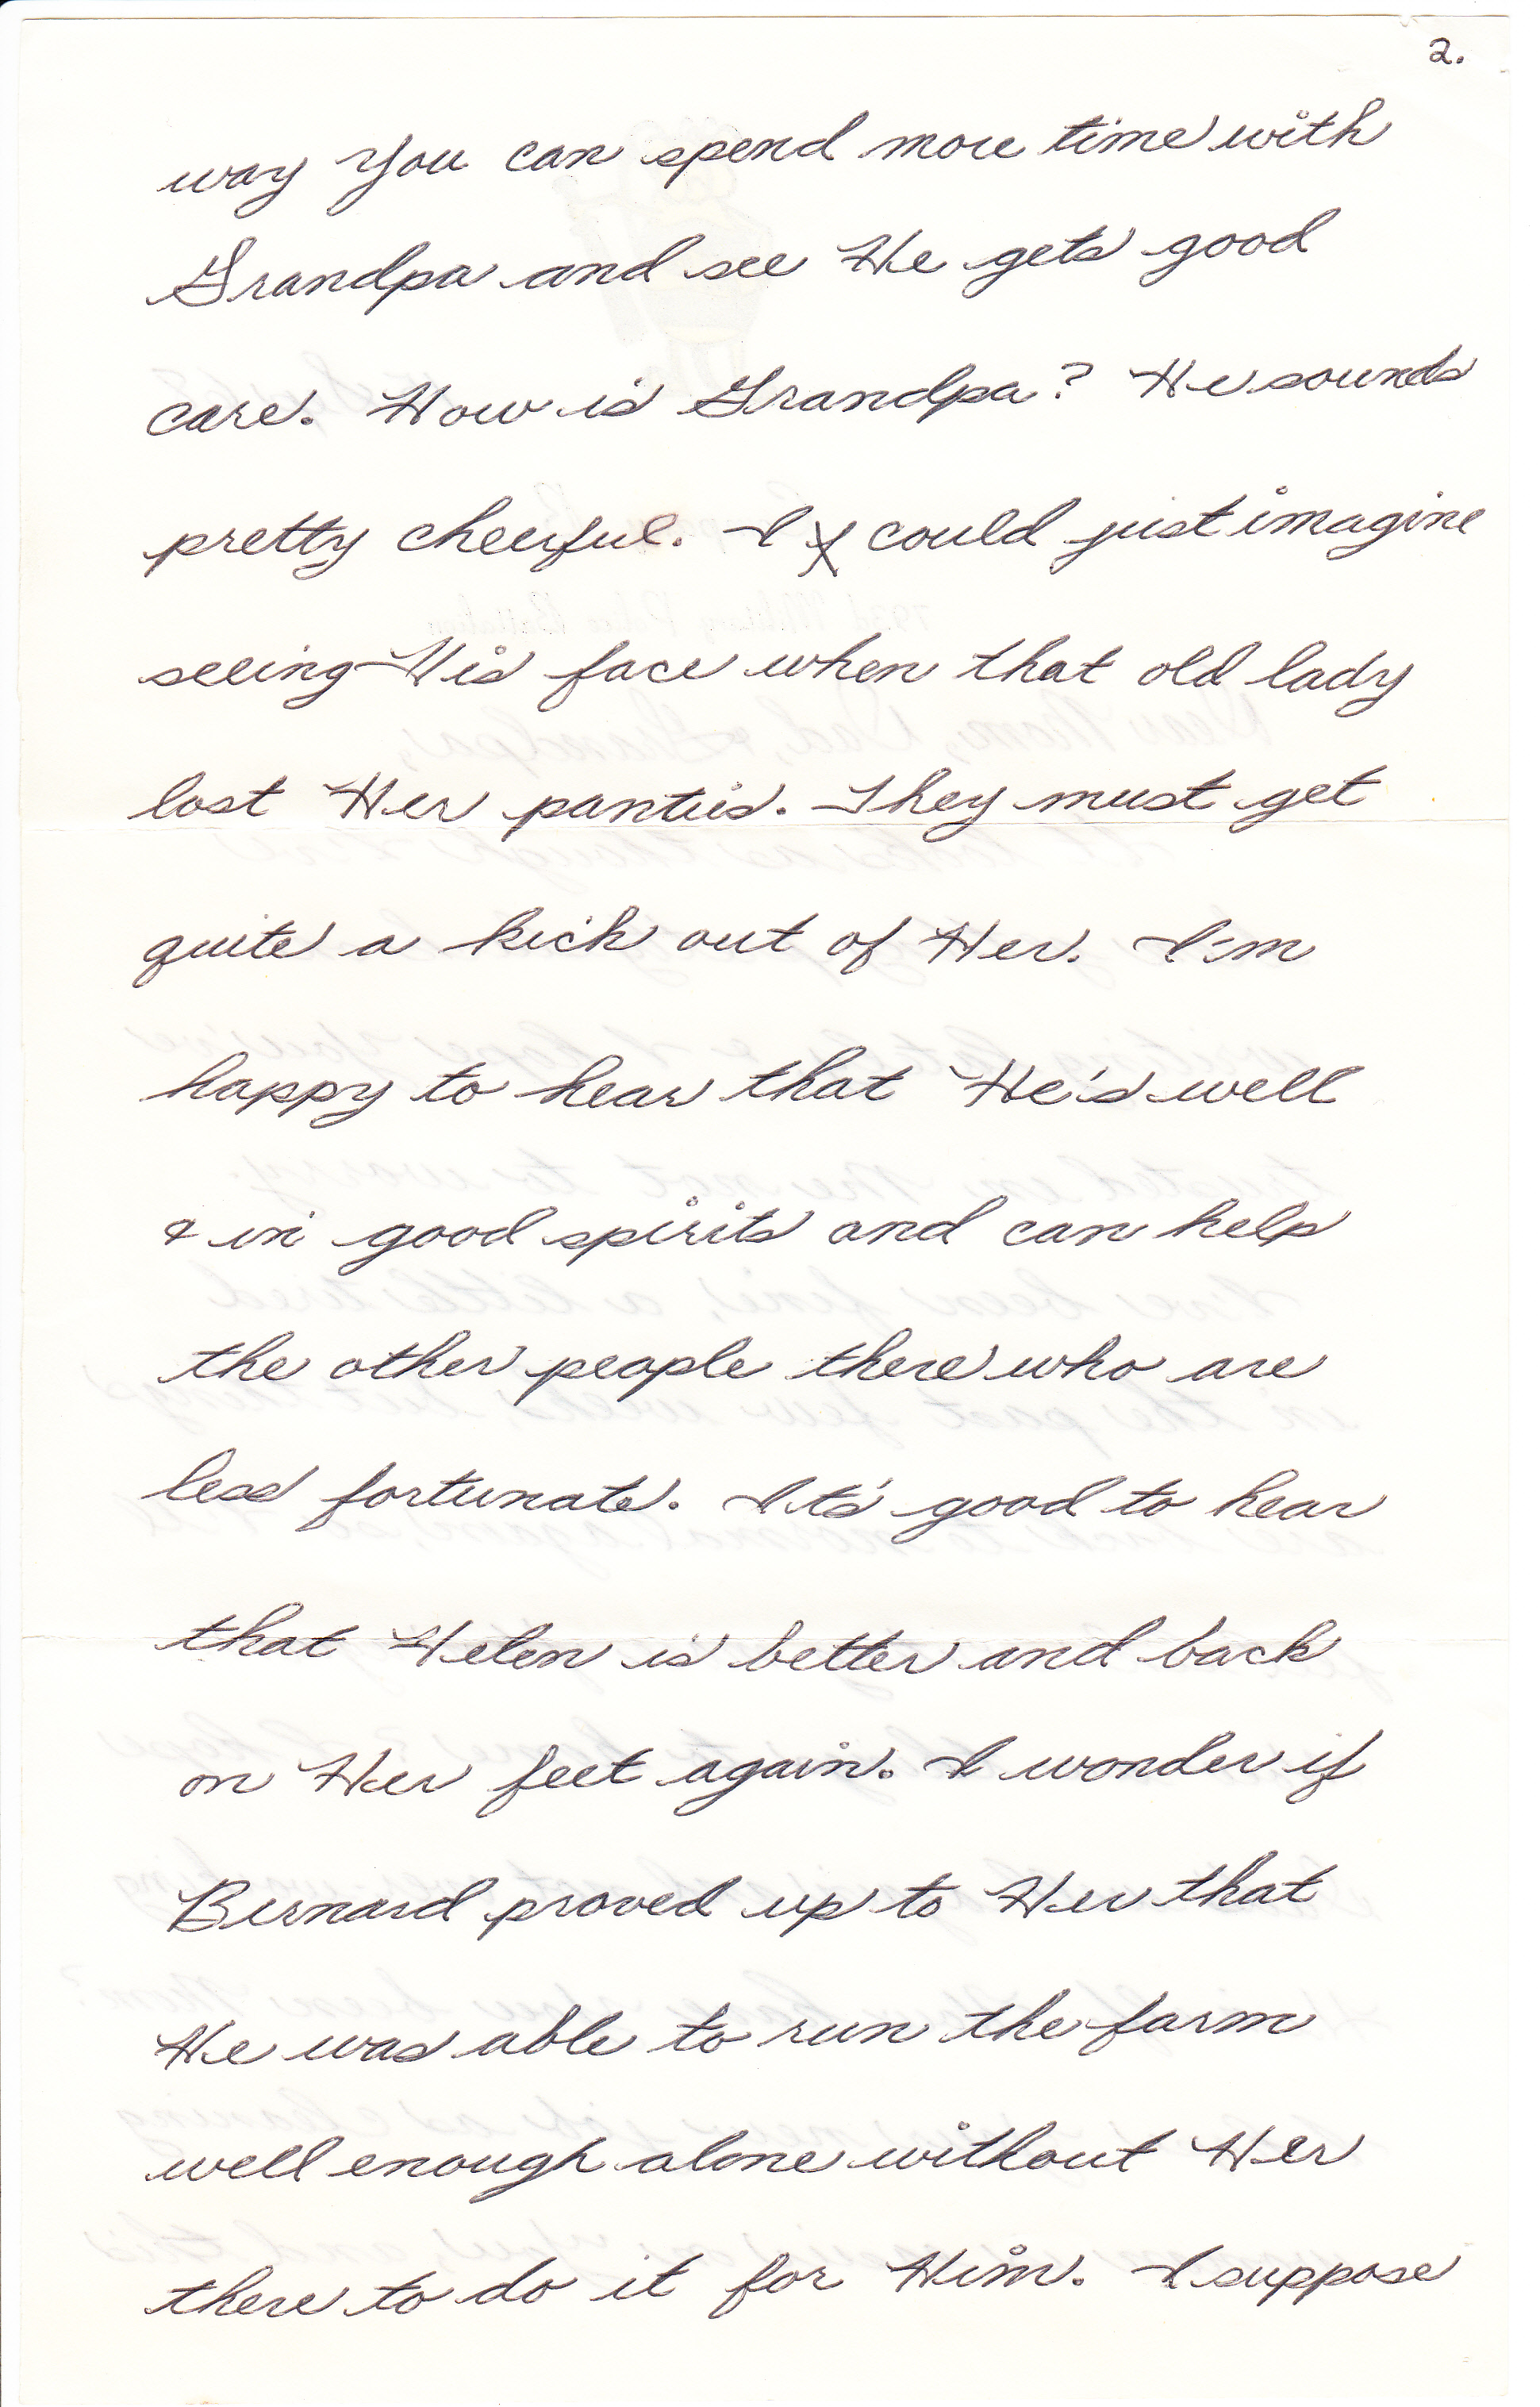 2.
way You can spend more time with
Grandpa and see He gets good
care. How is Grandpa? He sounds
pretty cheerful. I could just imagine
seeing His face when that old lady
lost Her panties. They must get
quite a kick out of Her. I'm
happy to hear that He's well
& in good spirits and can help
the other people there who are
less fortunate. It's good to hear
that Helen is better and back
on Her feet again. I wonder if
Bernard proved up to Her that
He was able to run the farm
well enough alone without Her
there to do it for Him. I suppose